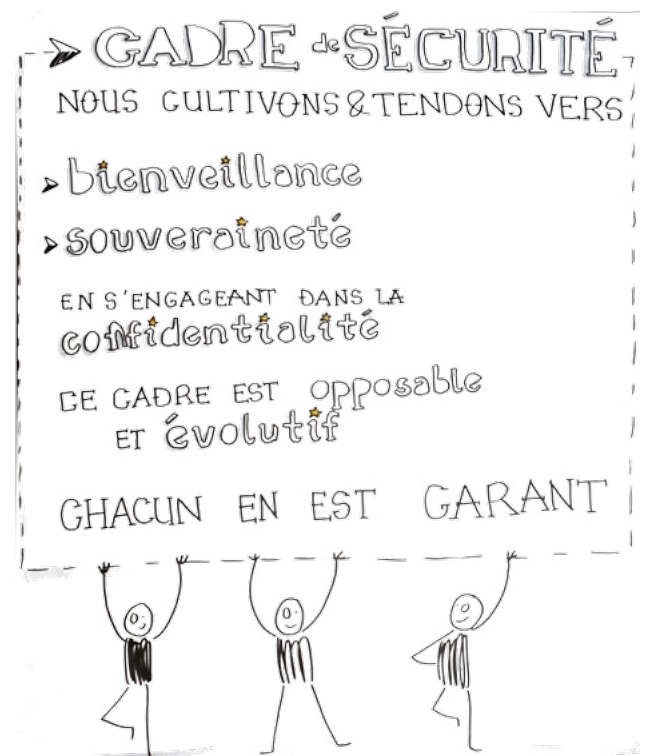 CADRE de SÉCURITÉ
NOUS CULTIVONS & TENDONS VERS
bienveillance
souveraineté
EN S'ENGAGEANT DANS LA
confidentialité
CE CADRE EST opposable
ET évolutif
CHACUN EN EST GARANT